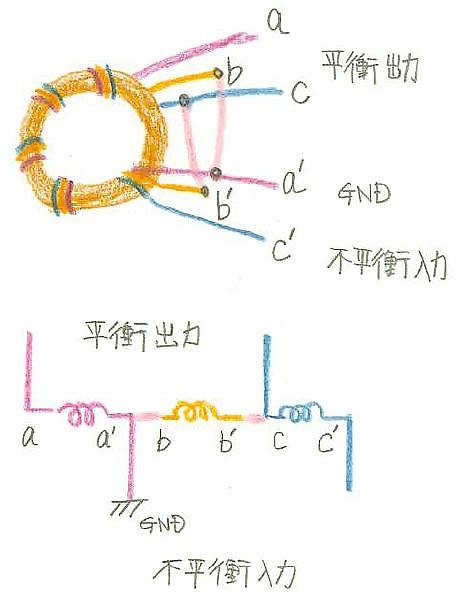 a
平衡出力
b
c
a'
GND
b'
c'
不平衡入力
平衡出力
a a' b b' c c'
GND
不平衡入力